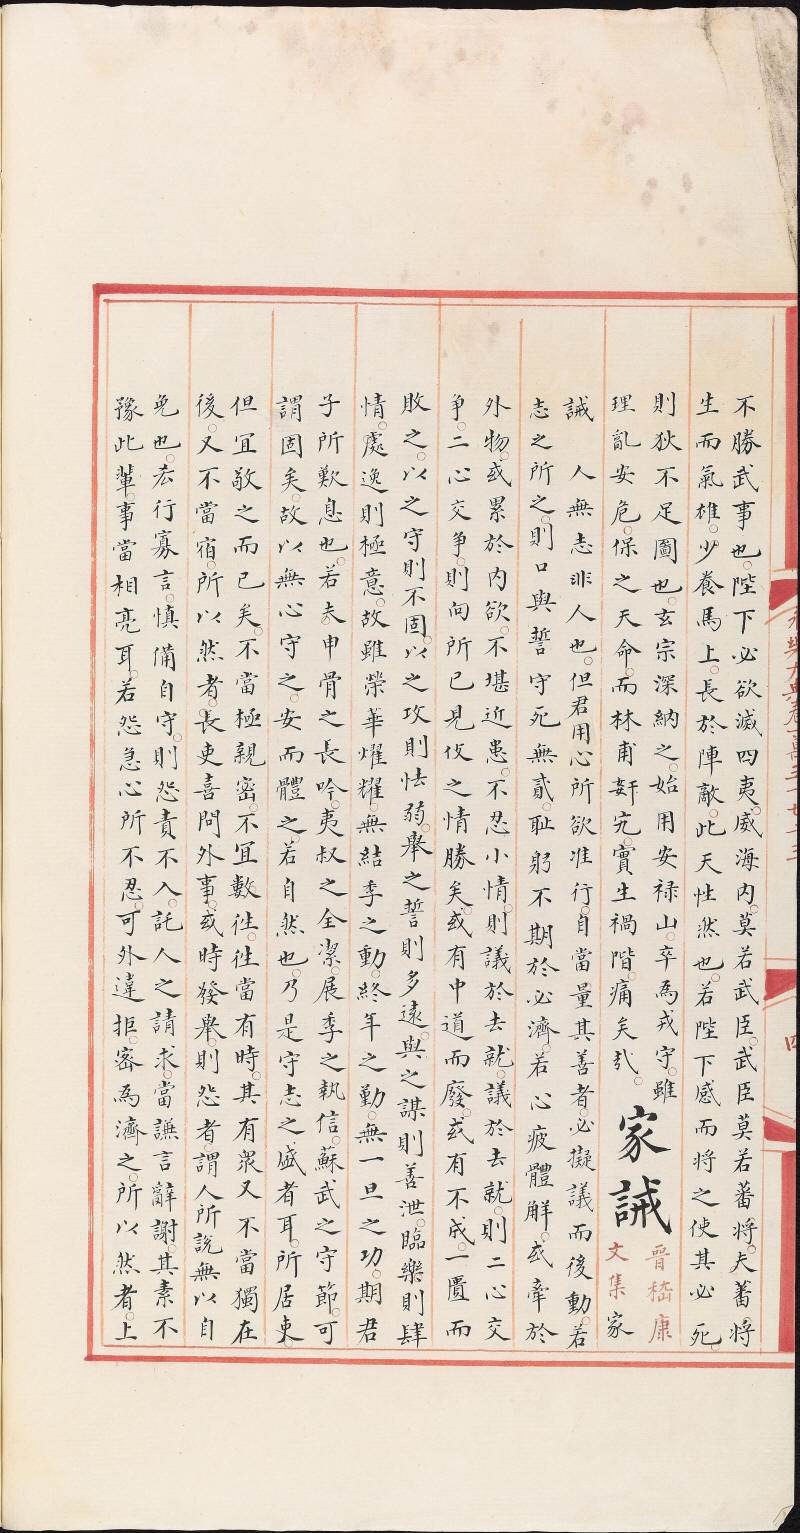 不勝武事也陛下必欲滅四夷威海内莫若武臣武臣莫若蕃將夫蕃將
生而氣雄少養馬上長於陣敵此天性然也若陛下感而將之使其必死
則狄不足圖也玄宗深納之始用安禄山卒為戎守雖
理亂安危保之天命而林甫姧宄實生禍階痛矣㢤
家誡
晉嵇康
文集
家
誡 人無志非人也但君用心所欲准行自當量其善者必擬議而後動若
志之所之則口與誓守死無貳耻躬不期於必濟若心疲體解或牽於
外物或累於内欲不堪近患不忍小情則議於去就議於去就則二心交
争二心交争則向所已見役之情勝矣或有中道而廢或有不成一匱而
敗之以之守則不固以之攻則怯弱舉之誓則多遠與之謀則善泄臨樂則肆
情處逸則極意故雖榮華燿耀無結季之動終年之勤無一旦之功期君
子所歎息也若夫申骨之長吟夷叔之全潔展季之執信蘇武之守節可
謂固矣故以無心守之安而體之若自然也乃是守志之盛者耳所居吏
但宜敬之而已矣不當極親密不宜數徃徃當有時其有眾又不當獨在
後又不當宿所以然者長吏喜問外事或時發舉則怨者謂人所說無以自
免也宏行寡言慎備自守則怨責不入託人之請求當謙言辭謝其素不
豫此輩事當相亮耳若怨急心所不忍可外違拒密為濟之所以然者上
四